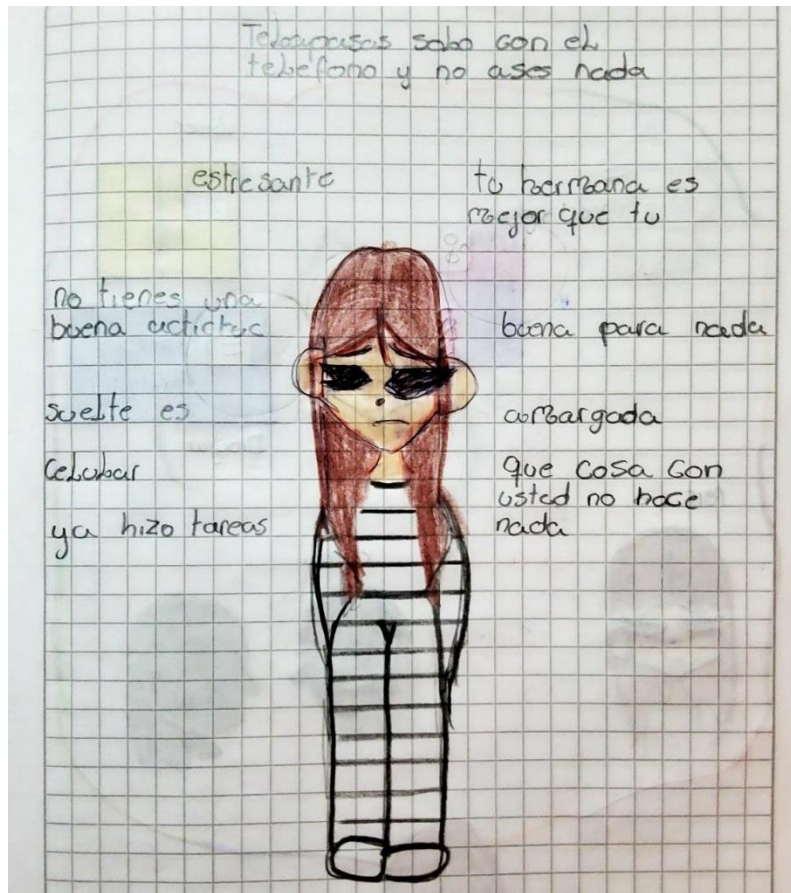 Telapasas solo con el
telefono y no ases nada
estresante
tu hermana es
mejor que tu
no tienes una
buena actictuc
buena para nada
suelte es
celular
amargada
que cosa con
usted no hace
nada
ya hizo tareas